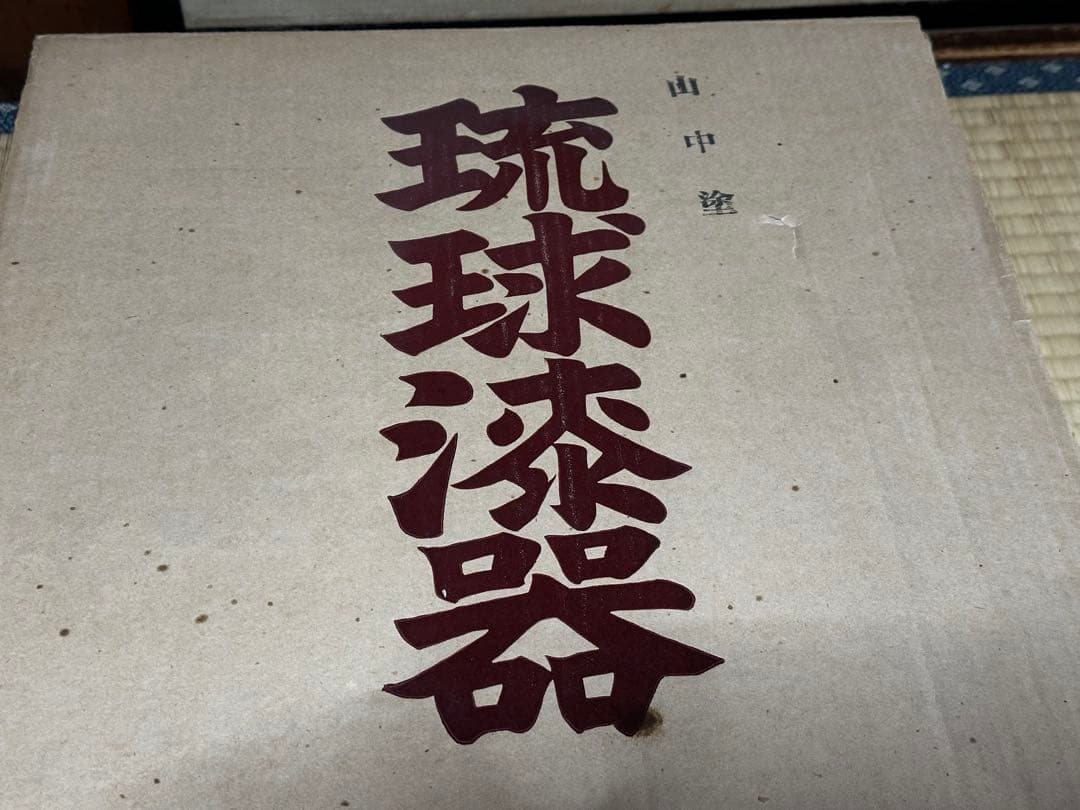 山中塗
琉球漆器